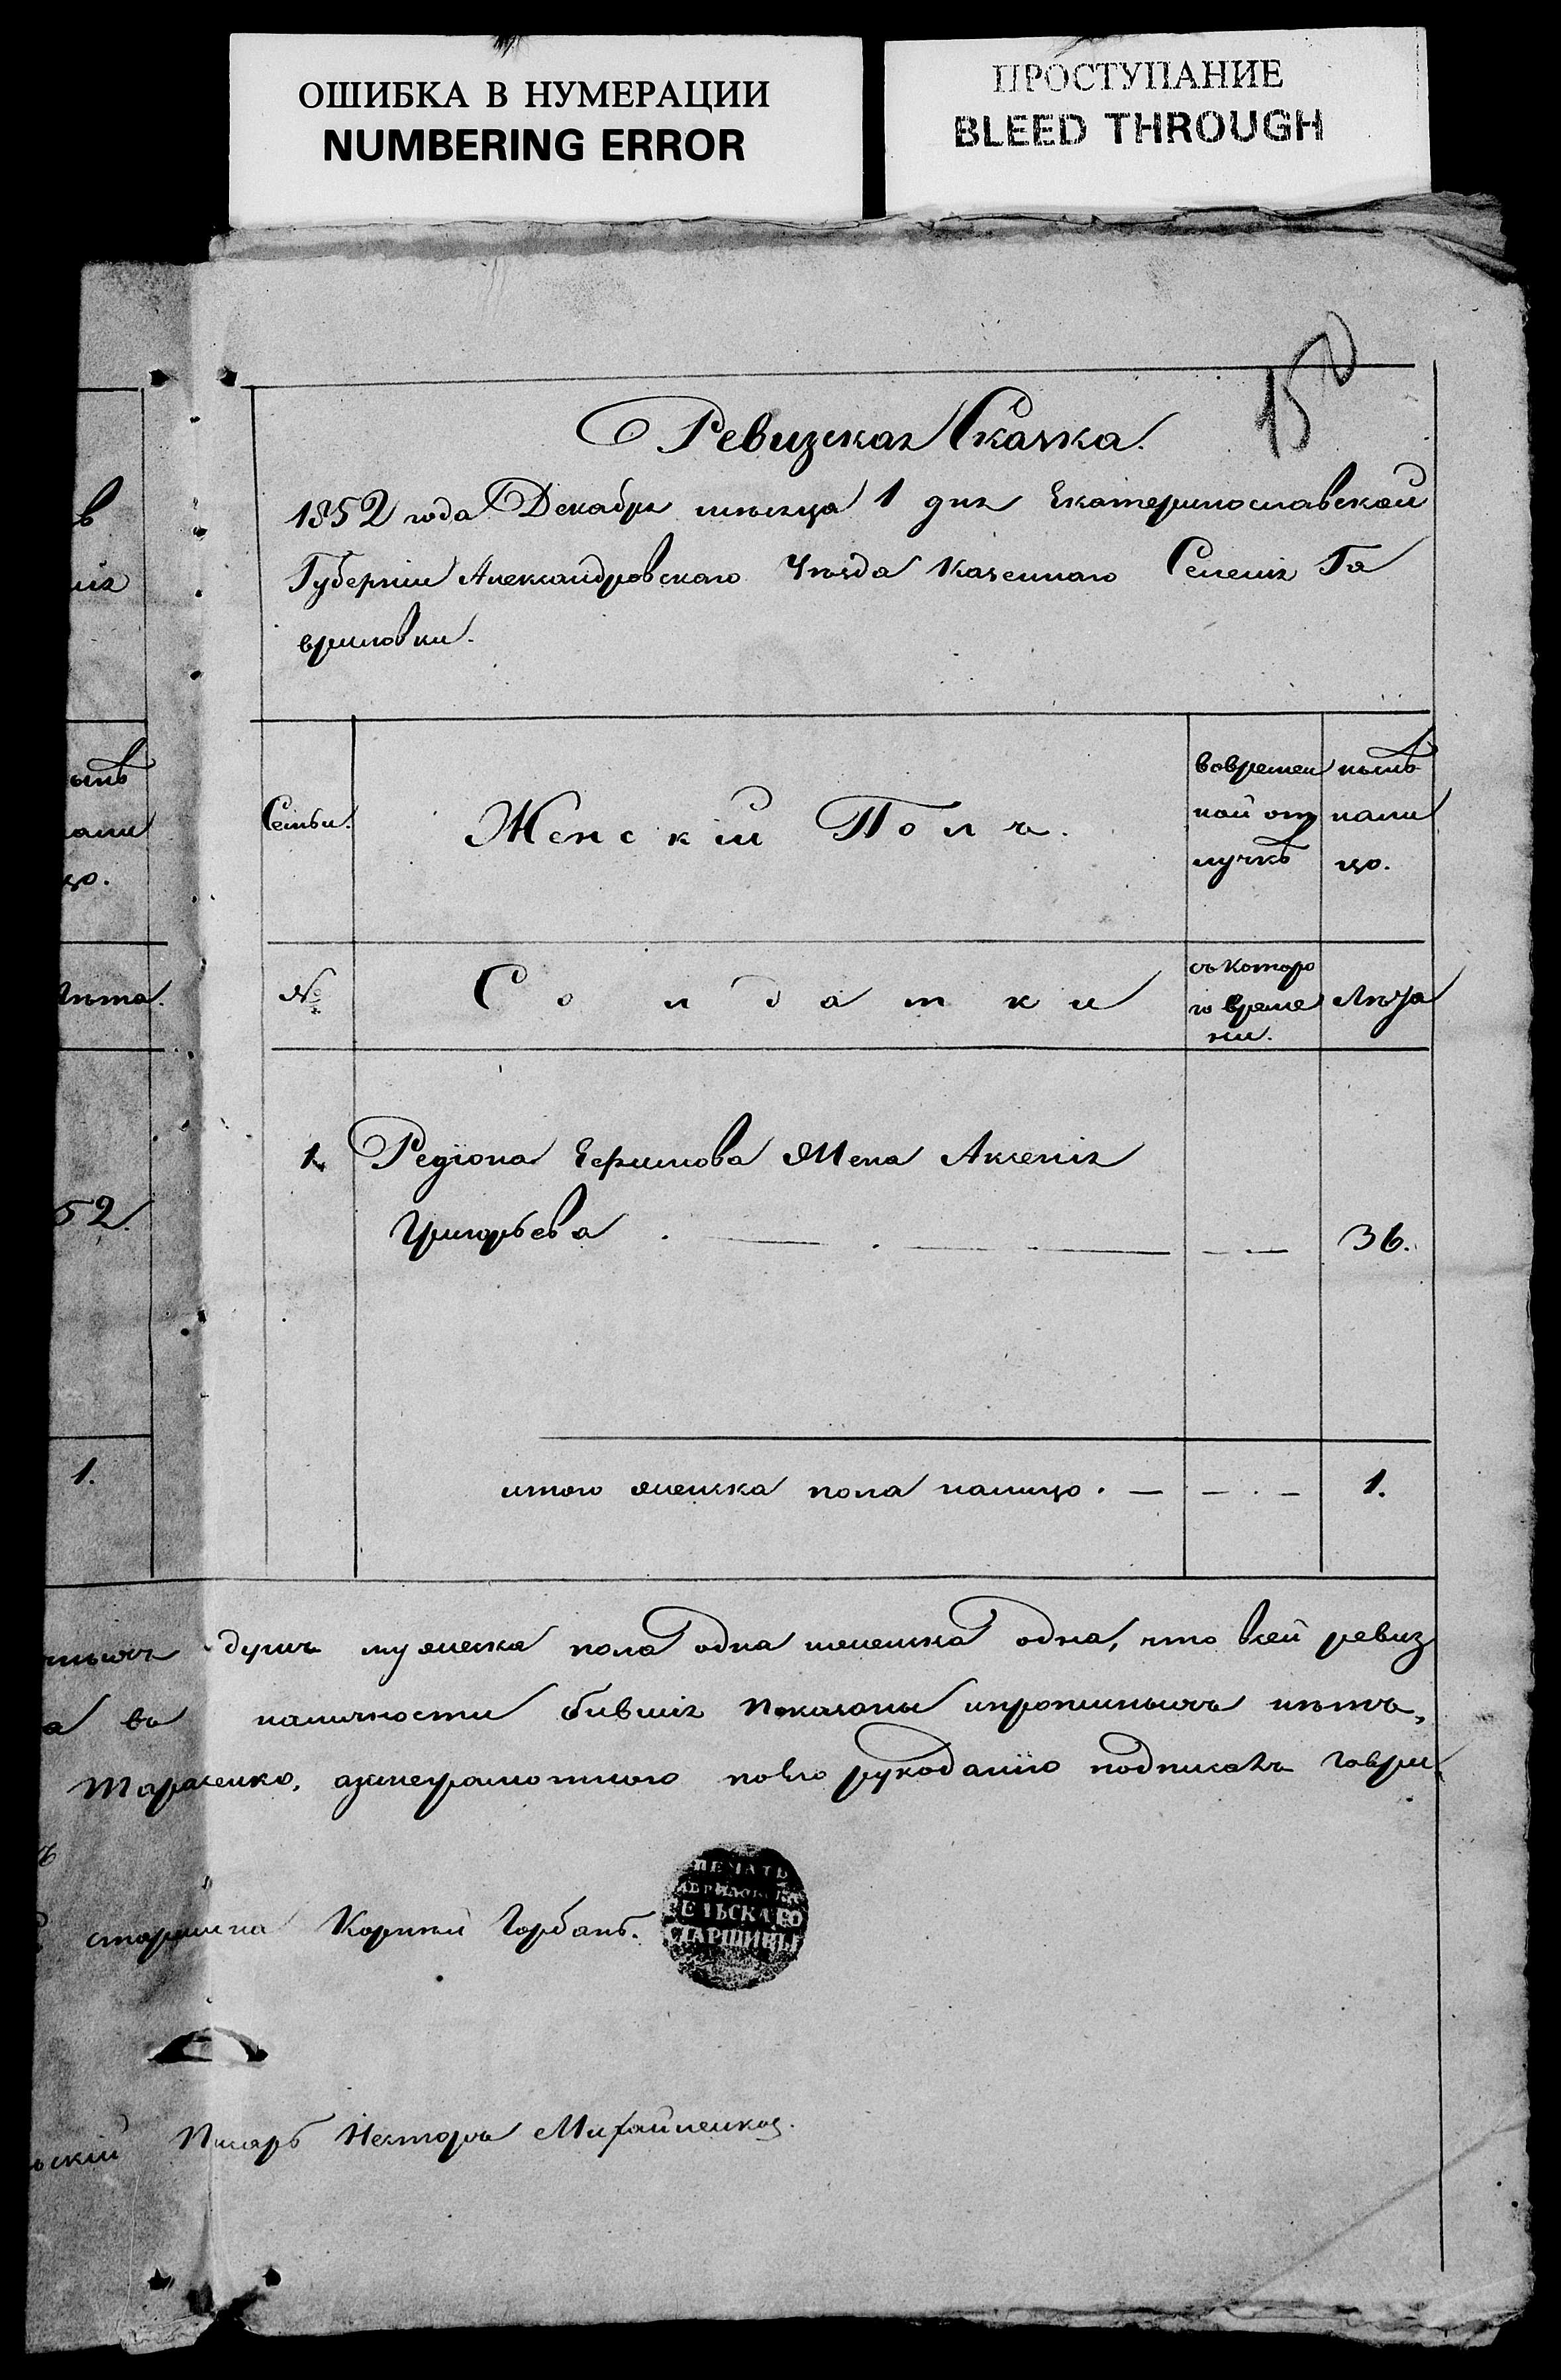 ОШИБКА В НУМЕРАЦИИ
NUMBERING ERROR
ПРОСТУПАНИЕ
BLEED THROUGH
15
Ревизская Сказка.
1852 года Декабря месяца 1 дня Екатеринославской
Губерніи Александровскаго Уѣзда Казеннаго Селенія Га
вриловки.
Семьи.
Женскій Полъ.
вовремен
ной от
лучкѣ
нынѣ
нали
цо.
№
Солдатки
съ которо
го време
ни.
Лѣта
1. Редіона Ефимова Жена Аксенія
Григорьева . — . — — — 36.
итого женска пола налицо. — — . — 1.
душъ муженска пола одна женска одна, что всей ревиз
а въ наличности бывшія показаны ипрописныхъ нѣтъ,
Тарасенко, азанеграмотного поего рукоданію подписалъ Гаври
старшина Корній Горбань.
ПЕЧАТЬ
СЕЛЬСКАГО
СТАРШИНЫ
ьскій Писарь Несторъ Михайленко
ынѣ
али
цо.
лѣта.
52.
1.